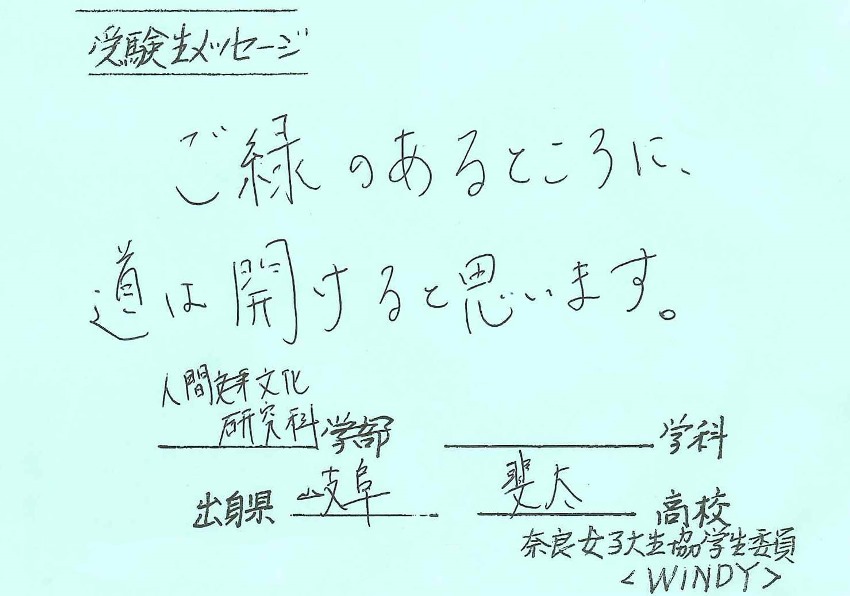 受験生メッセージ
ご緑のあるところに、
道は開けると思います。
人間文化
研究科学部 学科
出身県 岐阜 斐太 高校
奈良女子大生協学生委員
<WiNDY>